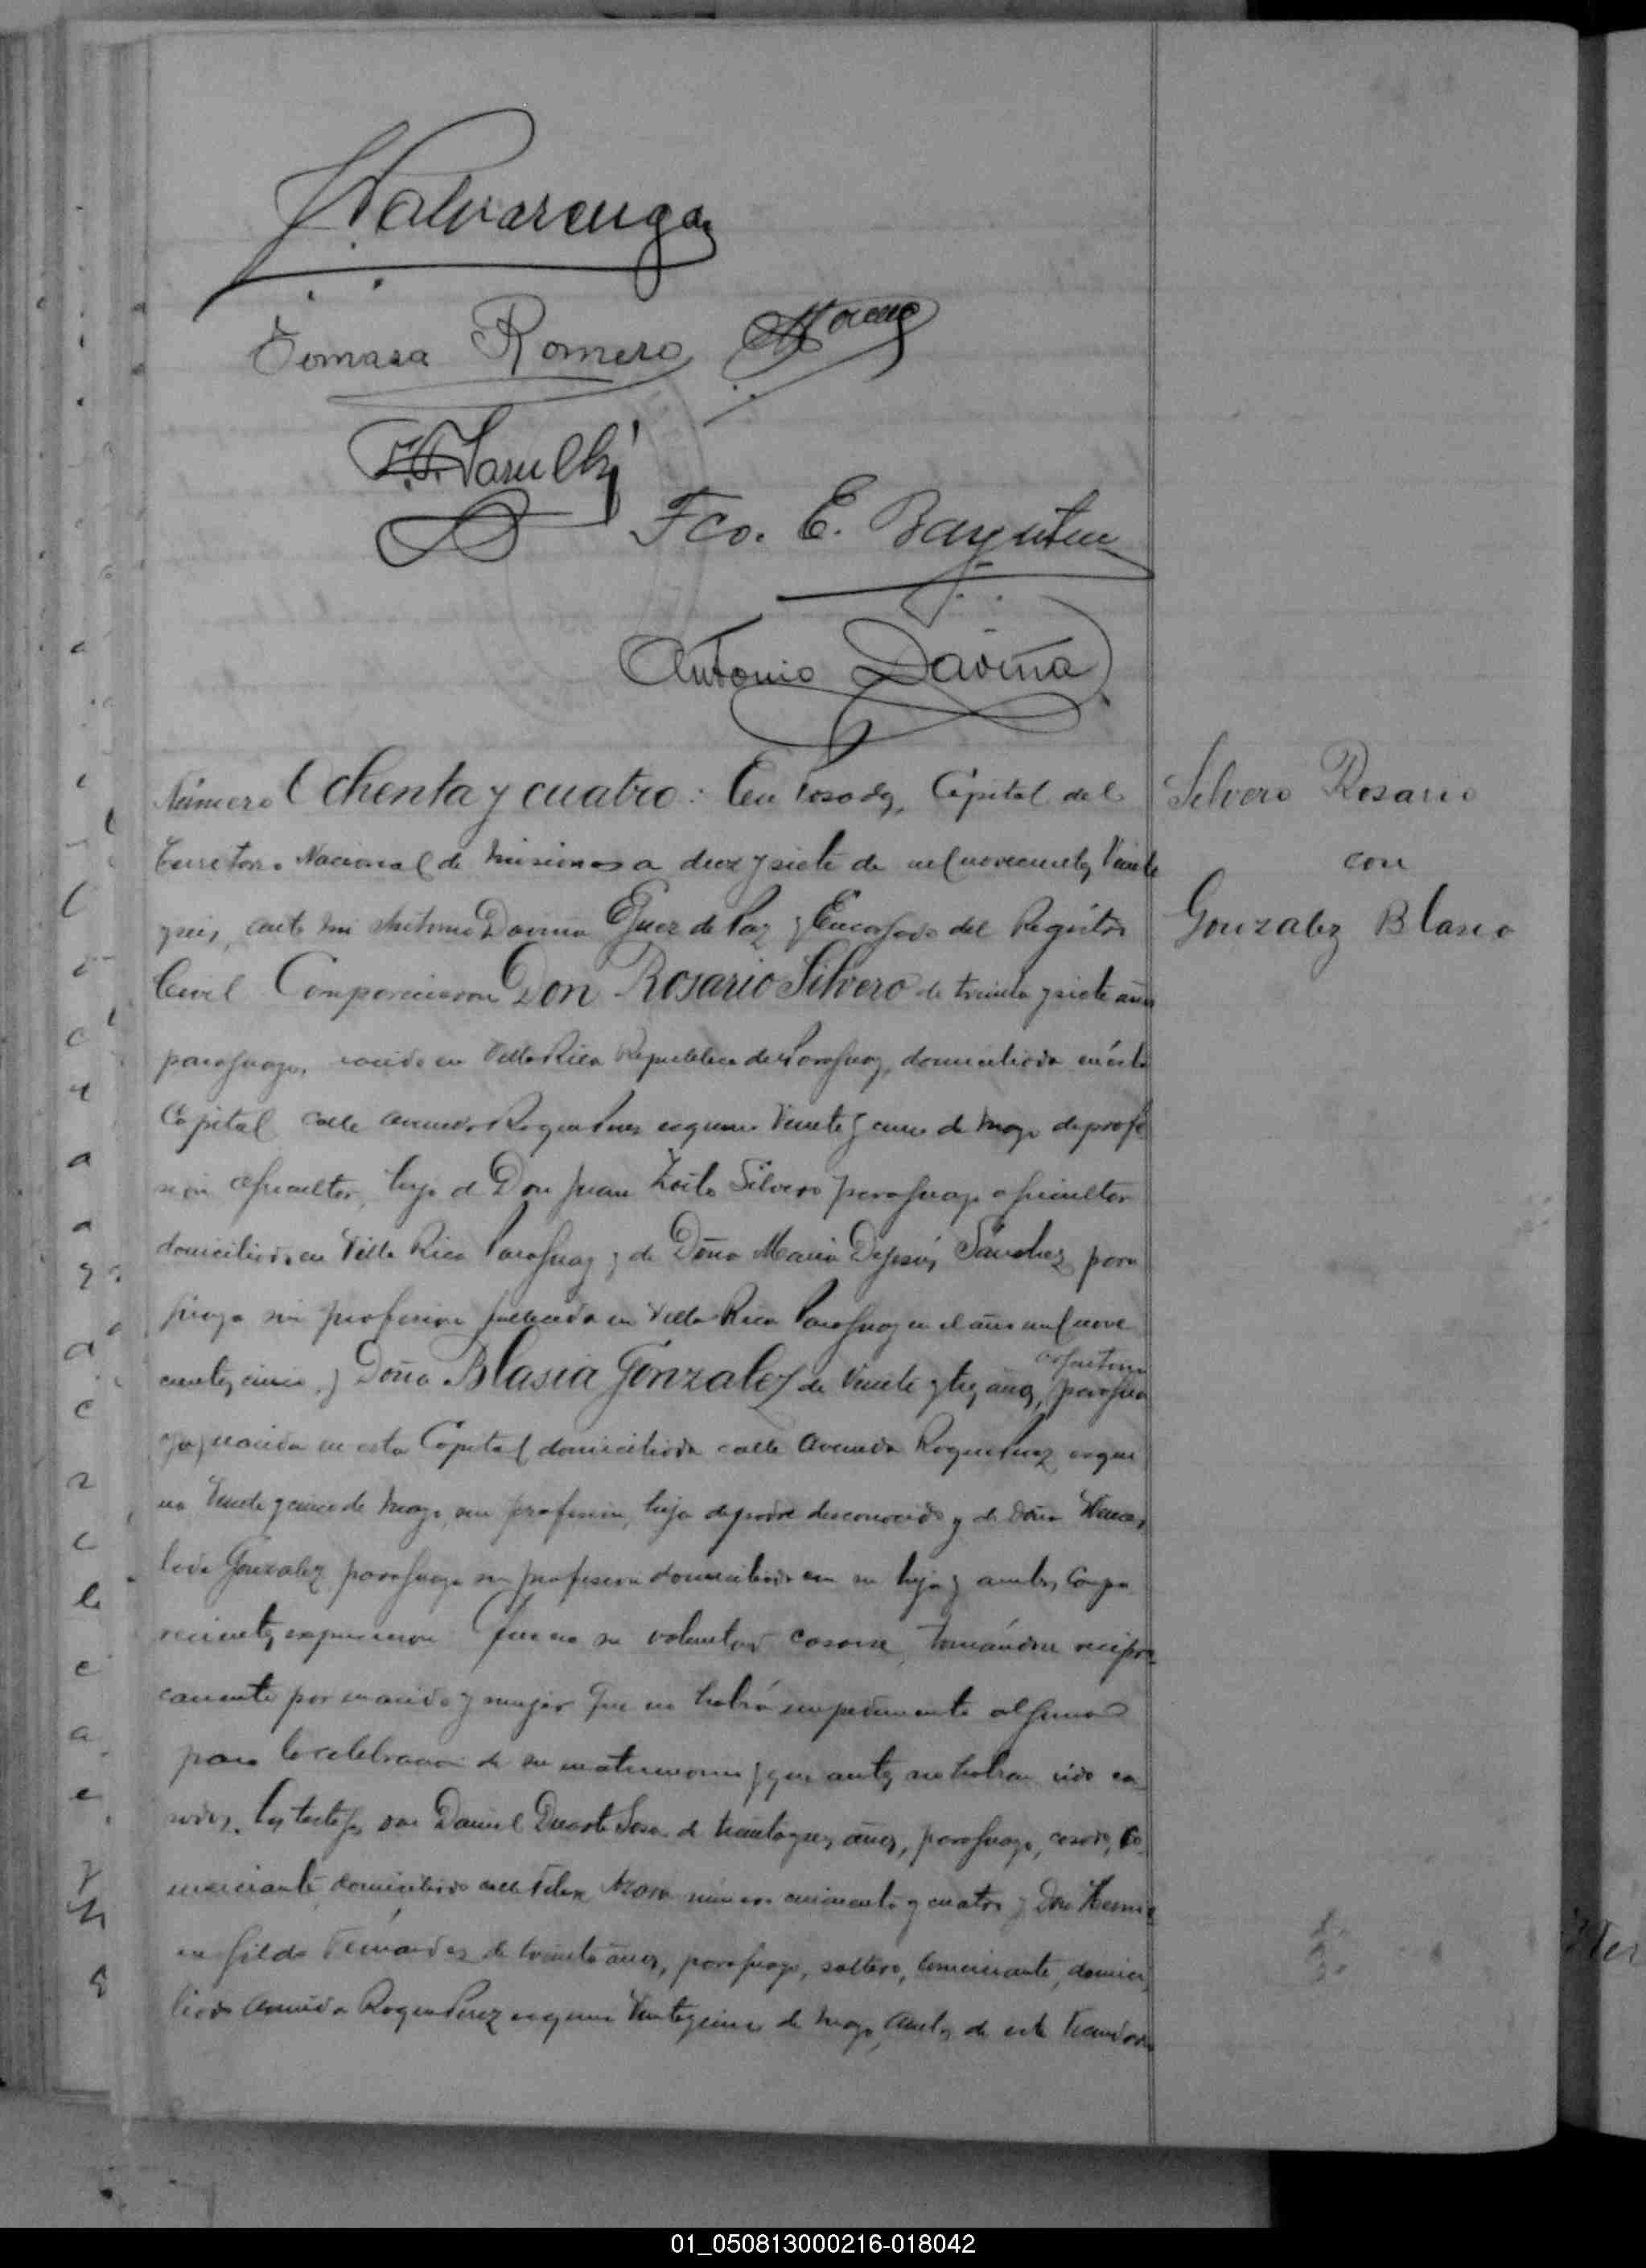 Tomasa Romero
Fco. E.
Antonio Daviña
Número Ochenta y cuatro: En Posadas, Capital del
Silvero Rosario
con
Gonzalez Blasia
Territorio Nacional de Misiones a diez y siete de mil novecientos Veinte
y seis, ante mi Antonio Daviña Juez de Paz y Encargado del Registro
Civil Comparecieron Don Rosario Silvero de treinta y siete años
paraguayo, nacido en Villa Rica Republica del Paraguay, domiciliado en ésta
Capital calle avenida Roque Perez esquina Veinte y cinco de Mayo de profe
sión agricultor, hijo de Don Juan Zoilo Silvero paraguayo agricultor
domiciliado en Villa Rica Paraguay y de Doña Maria Dejesús Sánchez para
guaya sin profesion fallecida en Villa Rica Paraguay en el año mil nove
cientos cinco y Doña Blasia Gonzalez de Veinte y tres años, paragua
ya, nacida en esta Capital domiciliada calle avenida Roque Perez esqui
na Veinte y cinco de Mayo, sin profesion, hija de padre desconocido y de Doña Wences
lada Gonzalez paraguaya sin profesion domiciliada con su hija y ambos compa
recientes expusieron Que es su voluntad casarse, tomándose recipro
camente por marido y mujer Que no habrá impedimento alguno
para la celebracion de su matrimonio y que antes no habian sido ca
sados. Los testigos son Daniel Duarte Sosa de treinta y tres años, paraguayo, casado, co
merciante domiciliado calle Felix Azara número cincuenta y cuatro y Don Herme
negildo Fernández de treinta años, paraguayo, soltero, comerciante, domici
liado avenida Roque Perez esquina Veinte y cinco de Mayo, Antes de este
01_050813000216-018042